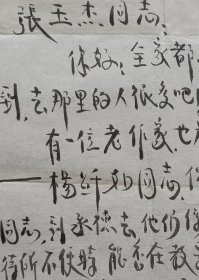 張玉杰同志：
你好！全家都
到，去那里的人很多吧
有一位老作家，也
——楊纤如同志，
同志，到承德去他们
待所不便時能否在教